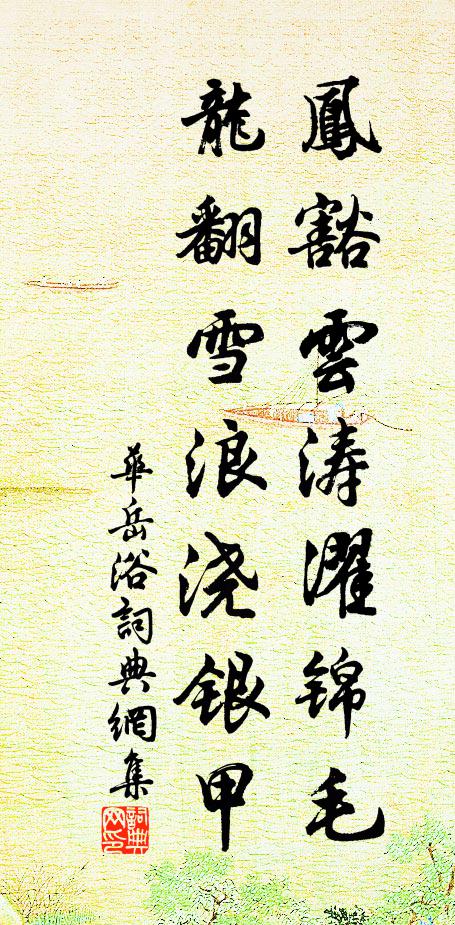 鳳豁雲涛濯锦毛
龍翻雪浪浇银甲
華岳浴詞典網集
詞典网印